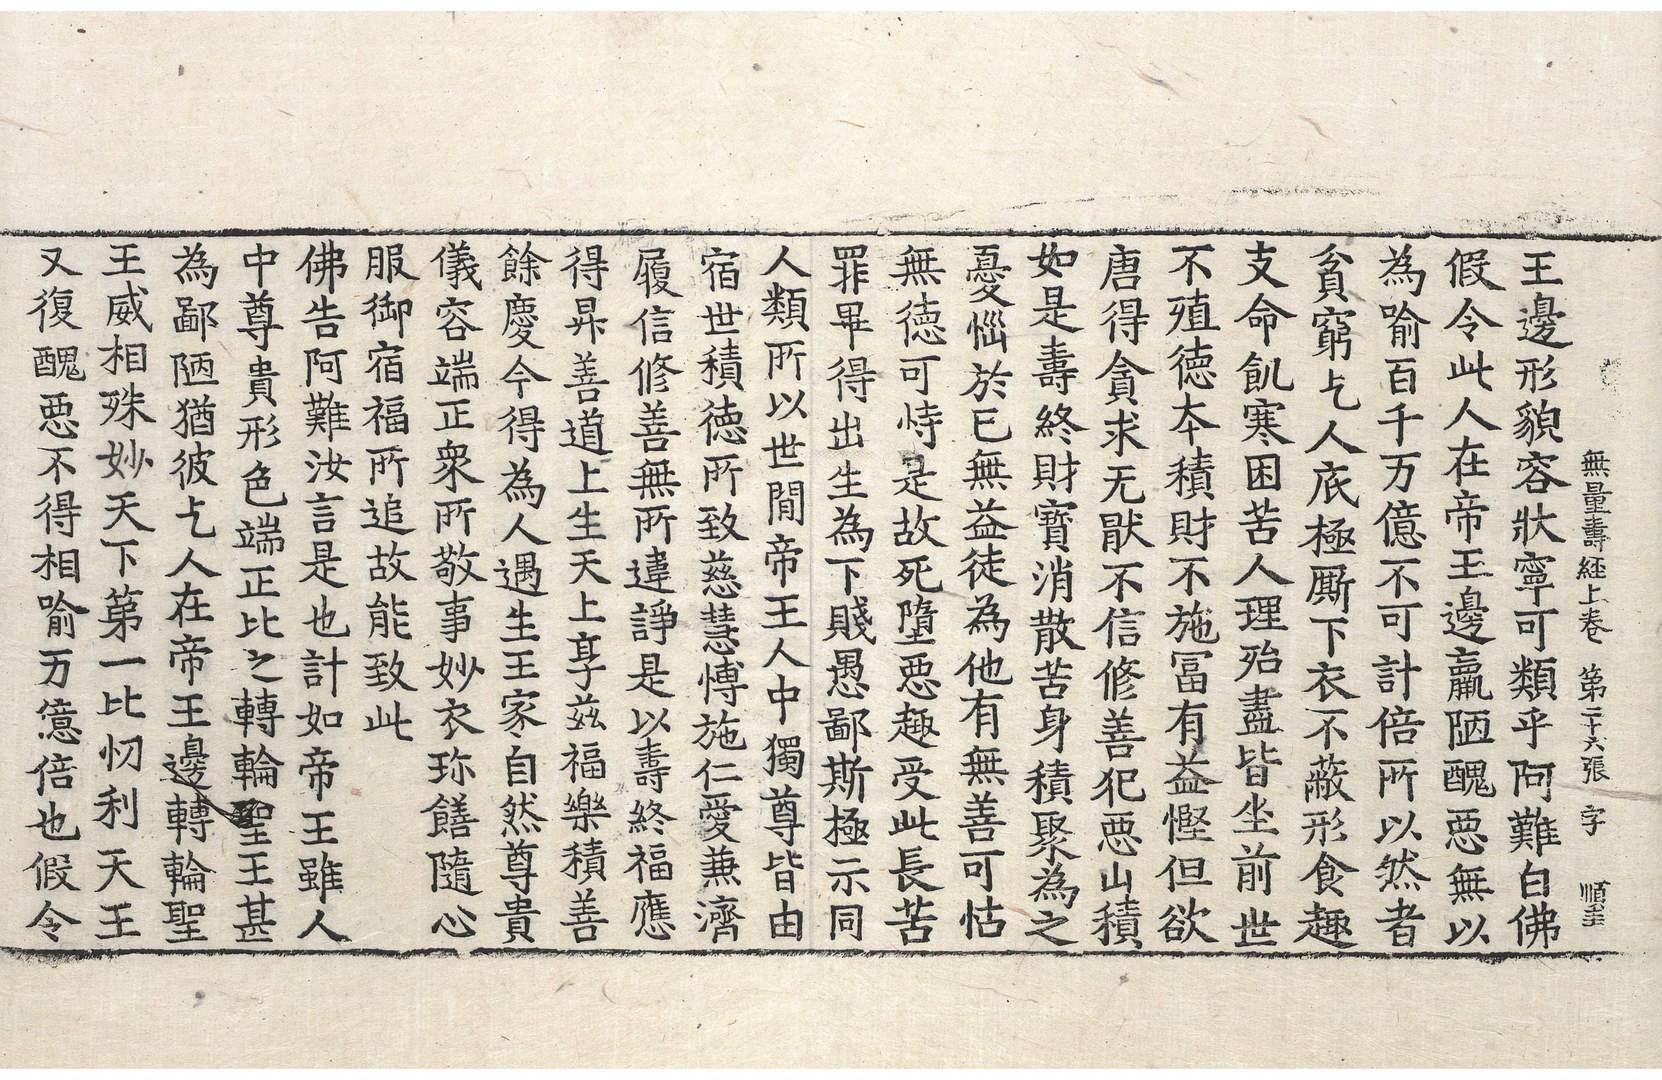 無量壽經上卷 第二十六張 字 順
王邊形貌容狀寧可類乎阿難白佛
假令此人在帝王邊羸陋醜惡無以
為喻百千万億不可計倍所以然者
貧窮乞人底極厮下衣不蔽形食趣
支命飢寒困苦人理殆盡皆坐前世
不殖德本積財不施冨有益慳但欲
唐得貪求无猒不信修善犯惡山積
如是壽終財寶消散苦身積聚為之
憂惱於己無益徒為他有無善可怙
無德可恃是故死墮惡趣受此長苦
罪畢得出生為下賤愚鄙斯極示同
人類所以世間帝王人中獨尊皆由
宿世積德所致慈慧愽施仁愛兼濟
履信修善無所違諍是以壽終福應
得昇善道上生天上享茲福樂積善
餘慶今得為人遇生王家自然尊貴
儀容端正衆所敬事妙衣珎饍隨心
服御宿福所追故能致此
佛告阿難汝言是也計如帝王雖人
中尊貴形色端正比之轉輪聖王甚
為鄙陋猶彼乞人在帝王邊轉輪聖
王威相殊妙天下第一比忉利天王
又復醜惡不得相喻万億倍也假令